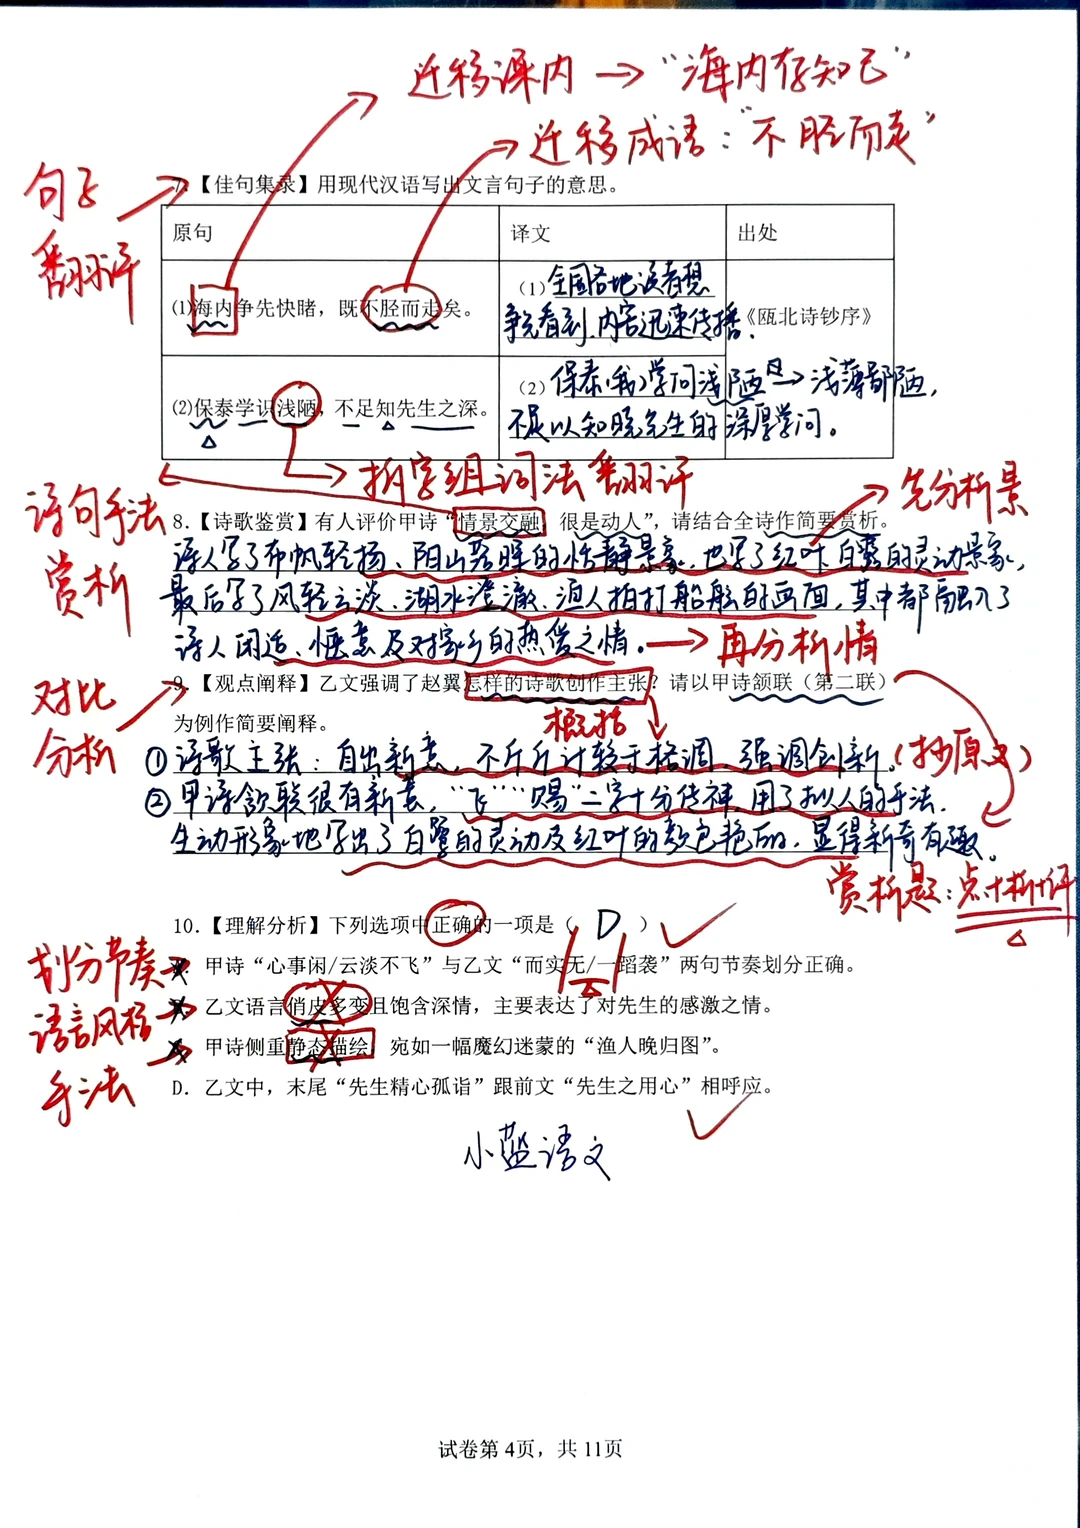 迁移课内→“海内存知己”
迁移成语：“不胫而走”
句子
翻译
7.【佳句集录】用现代汉语写出文言句子的意思。
原句 译文 出处
⑴海内争先快睹，既不胫而走矣。
（1）全国各地读者想
争先看到、内容迅速传播。
《瓯北诗钞序》
⑵保泰学识浅陋，不足知先生之深。
（2）保泰（我）学问浅陋→浅薄鄙陋，
不足以知晓先生的深厚学问。
拆字组词法翻译
诗句手法
赏析
先分析景
8.【诗歌鉴赏】有人评价甲诗“情景交融，很是动人”，请结合全诗作简要赏析。
诗人写了布帆轻扬、阳山落晖的恬静景象，也写了红叶、白鹭的灵动景象，
最后写了风轻云淡、湖水澄澈、渔人拍打船舷的画面，其中都融入了
诗人闲适、惬意及对家乡的热爱之情。→再分析情
对比
分析
9.【观点阐释】乙文强调了赵翼怎样的诗歌创作主张？请以甲诗颔联（第二联）
为例作简要阐释。
概括
①诗歌主张：自出新意，不斤斤计较于格调，强调创新。（抄原文）
②甲诗颔联很有新意，“飞”“赐”二字十分传神，用了拟人的手法，
生动形象地写出了白鹭的灵动及红叶的颜色艳丽，显得新奇有趣。
赏析题：点+析+评
10.【理解分析】下列选项中正确的一项是（ D ）
划分节奏
甲诗“心事闲/云淡不飞”与乙文“而实无/一蹈袭”两句节奏划分正确。
语言风格
乙文语言俏皮多变且饱含深情，主要表达了对先生的感激之情。
手法
甲诗侧重静态描绘，宛如一幅魔幻迷蒙的“渔人晚归图”。
D. 乙文中，末尾“先生精心孤诣”跟前文“先生之用心”相呼应。
小蓝语文
试卷第 4页，共 11页